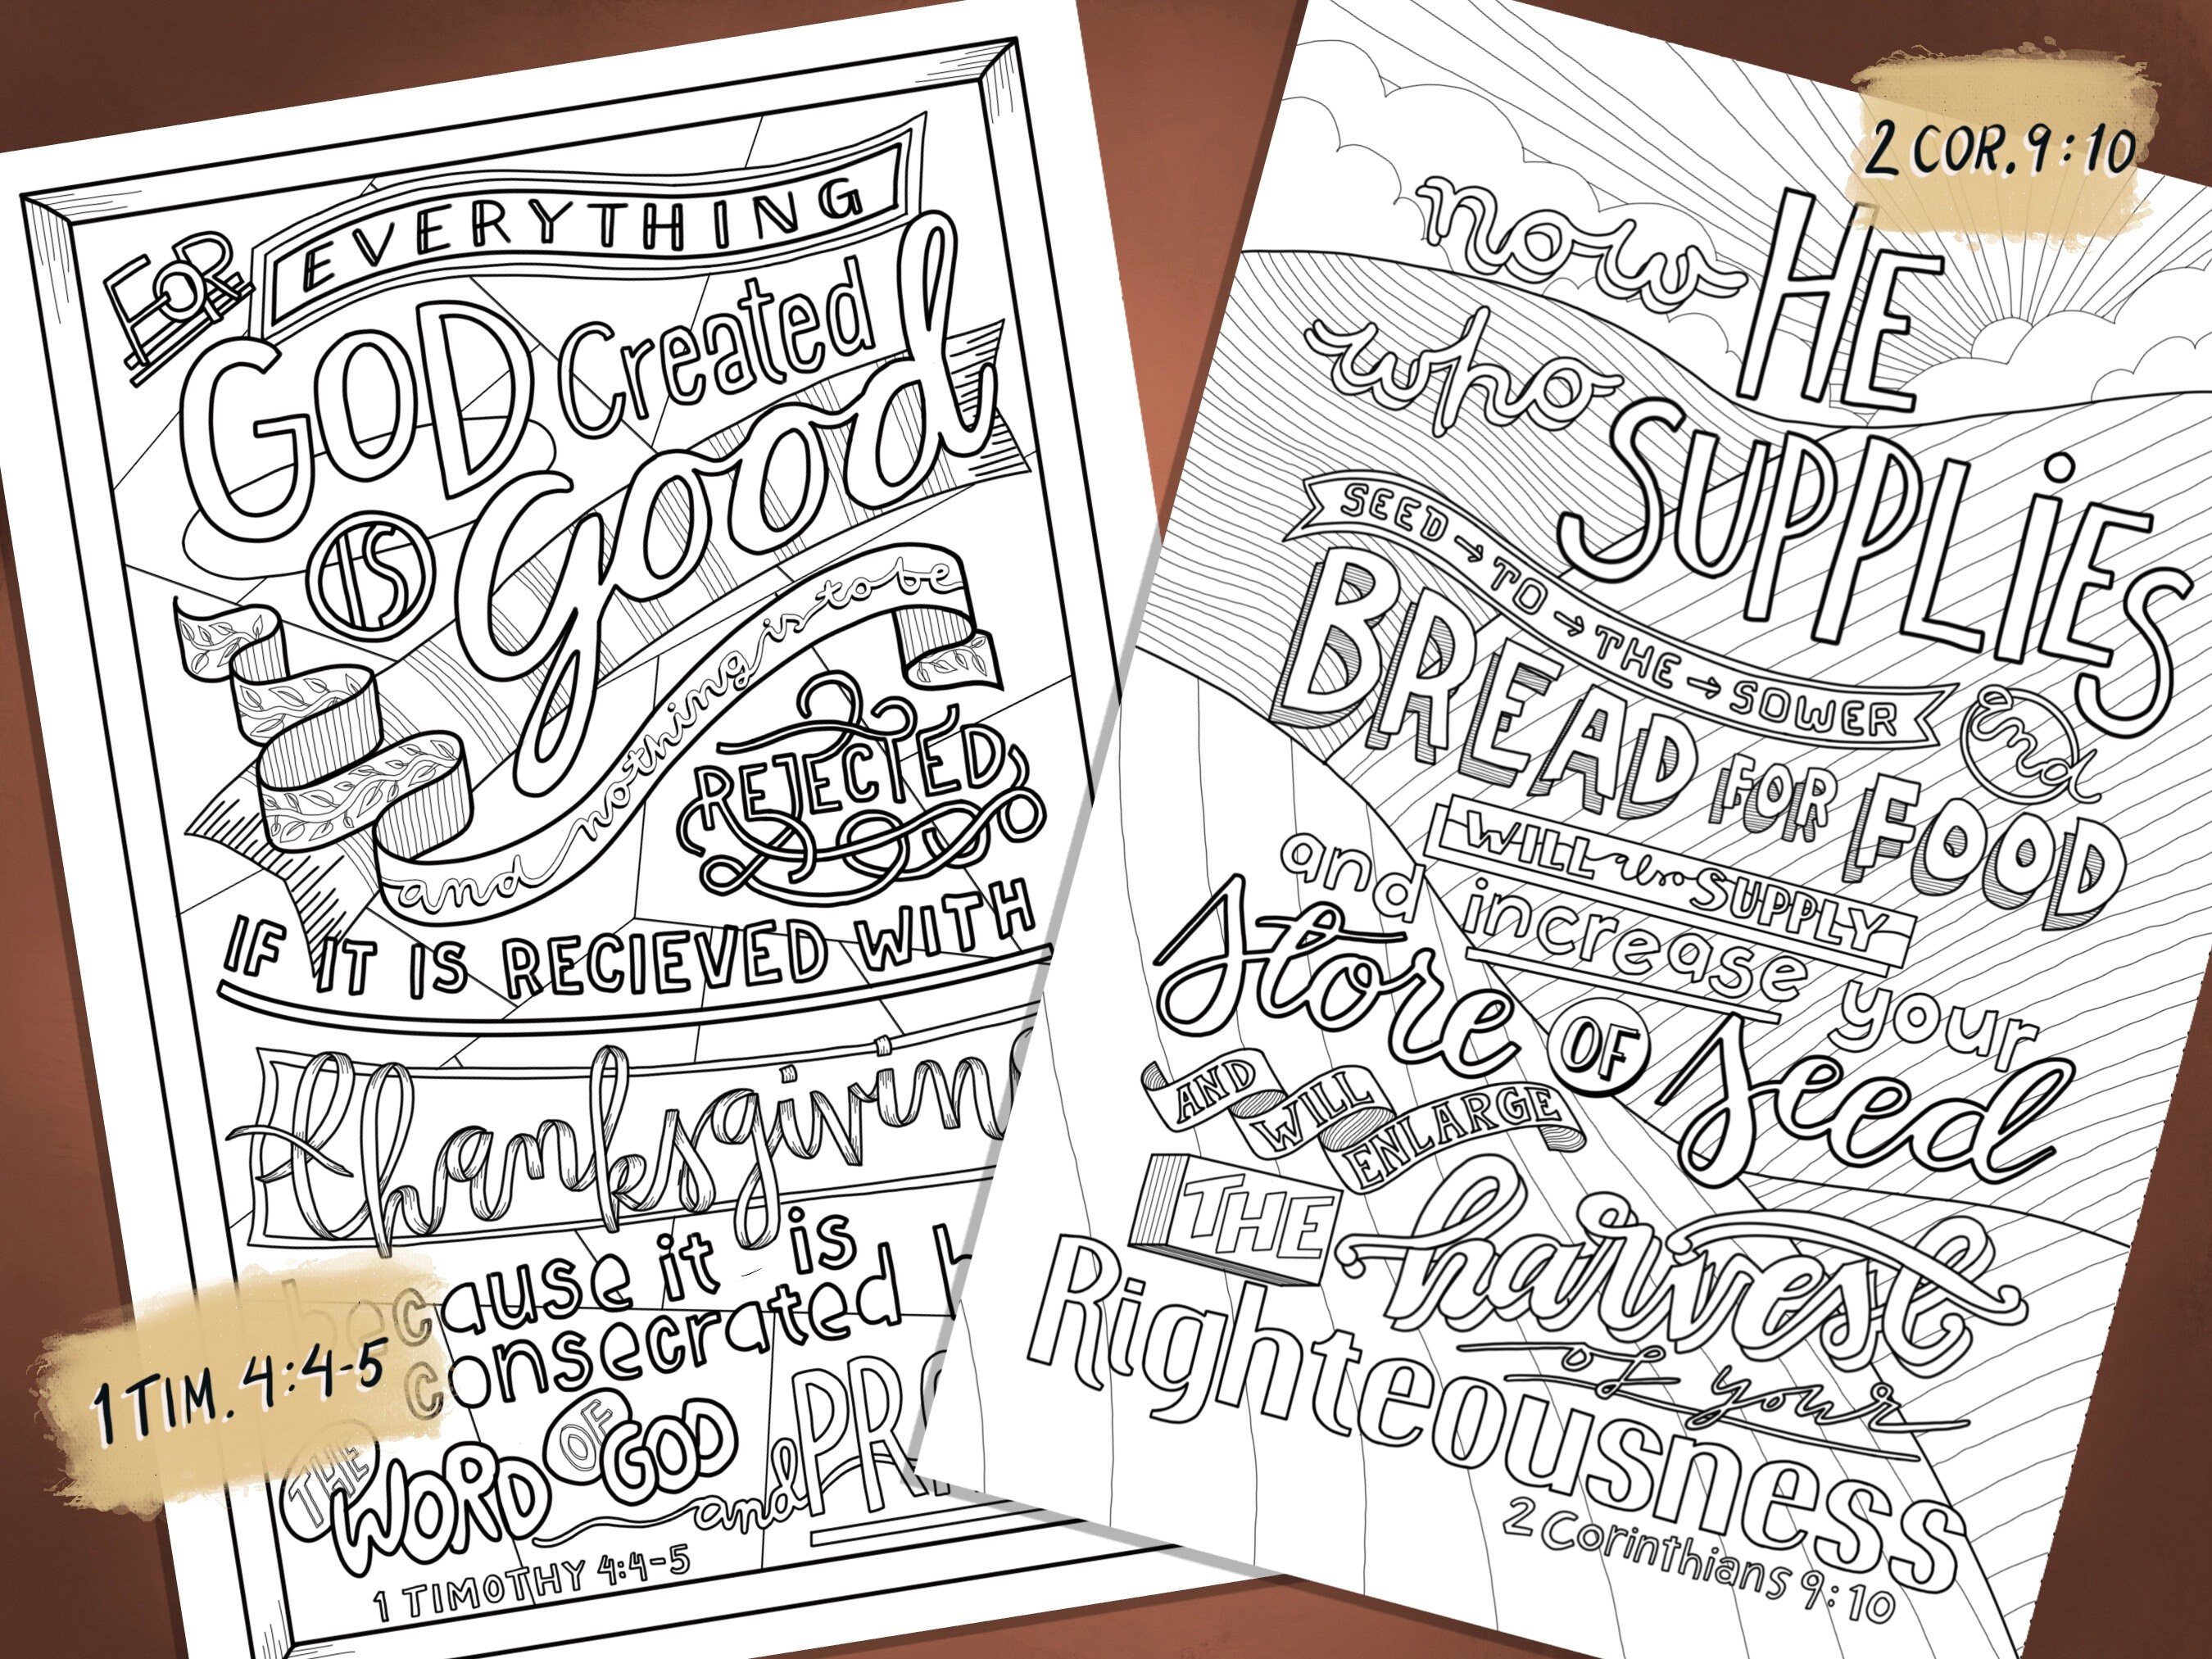 FOR EVERYTHING
GOD Created
IS good
and nothing is to be
REJECTED
IF IT IS RECIEVED WITH
thanksgiving
because it is
consecrated b
THE WORD OF GOD
and PRA
1 TIMOTHY 4:4-5
1 TIM. 4:4-5
2 COR. 9:10
now HE
who SUPPLiES
SEED → TO → THE → SOWER
and
BREAD FOR FOOD
WILL also SUPPLY
and increase your
store OF seed
AND WILL ENLARGE
THE harvest
of your
Righteousness
2 Corinthians 9:10